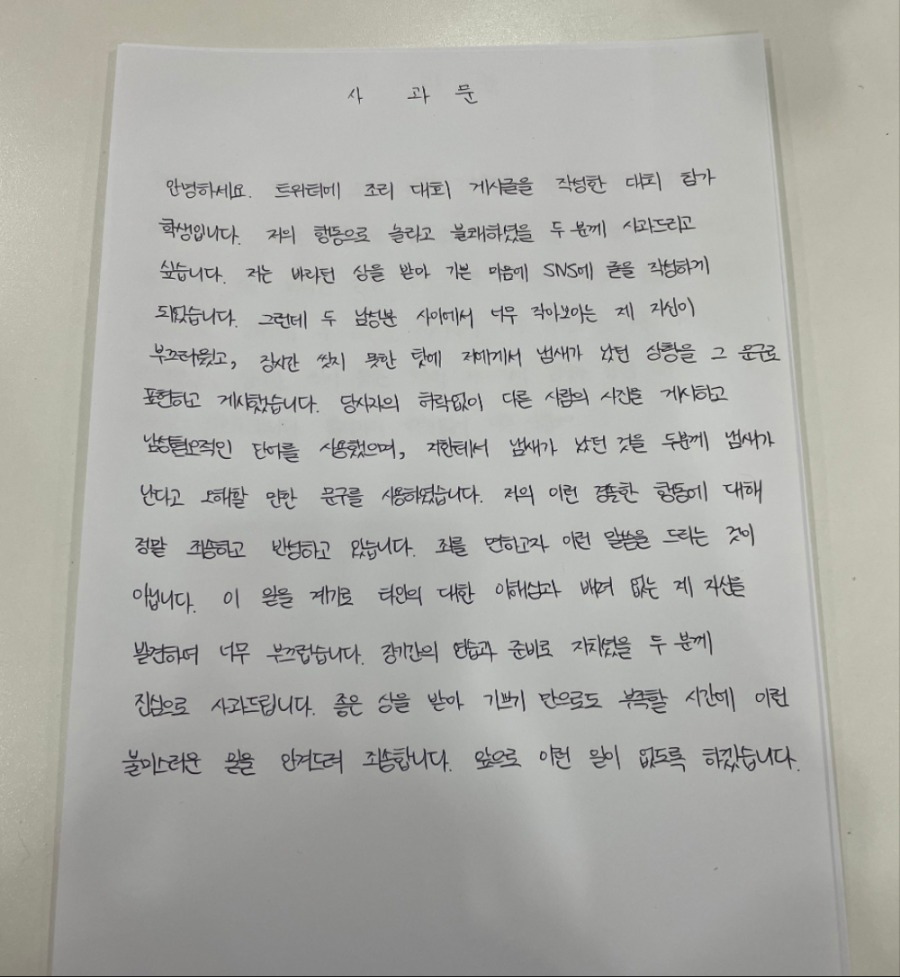 사 과 문
안녕하세요. 트위터에 조리 대회 게시글을 작성한 대회 참가
학생입니다. 저의 행동으로 놀라고 불쾌하셨을 두 분께 사과드리고
싶습니다. 저는 바라던 상을 받아 기쁜 마음에 SNS에 글을 작성하게
되었습니다. 그런데 두 남성분 사이에서 너무 작아보이는 제 자신이
부끄러웠고, 장시간 씻지 못한 탓에 저에게서 냄새가 났던 상황을 그 문구로
표현하고 게시했습니다. 당사자의 허락없이 다른 사람의 사진을 게시하고
남성혐오적인 단어를 사용했으며, 저한테서 냄새가 났던 것을 두분께 냄새가
난다고 오해할 만한 문구를 사용하였습니다. 저의 이런 경솔한 행동에 대해
정말 죄송하고 반성하고 있습니다. 죄를 면하고자 이런 말씀을 드리는 것이
아닙니다. 이 일을 계기로 타인의 대한 이해심과 배려 없는 제 자신을
발견하여 너무 부끄럽습니다. 장기간의 연습과 준비로 지치셨을 두 분께
진심으로 사과드립니다. 좋은 상을 받아 기쁘기 만으로도 부족할 시간에 이런
불미스러운 일을 안겨드려 죄송합니다. 앞으로 이런 일이 없도록 하겠습니다.